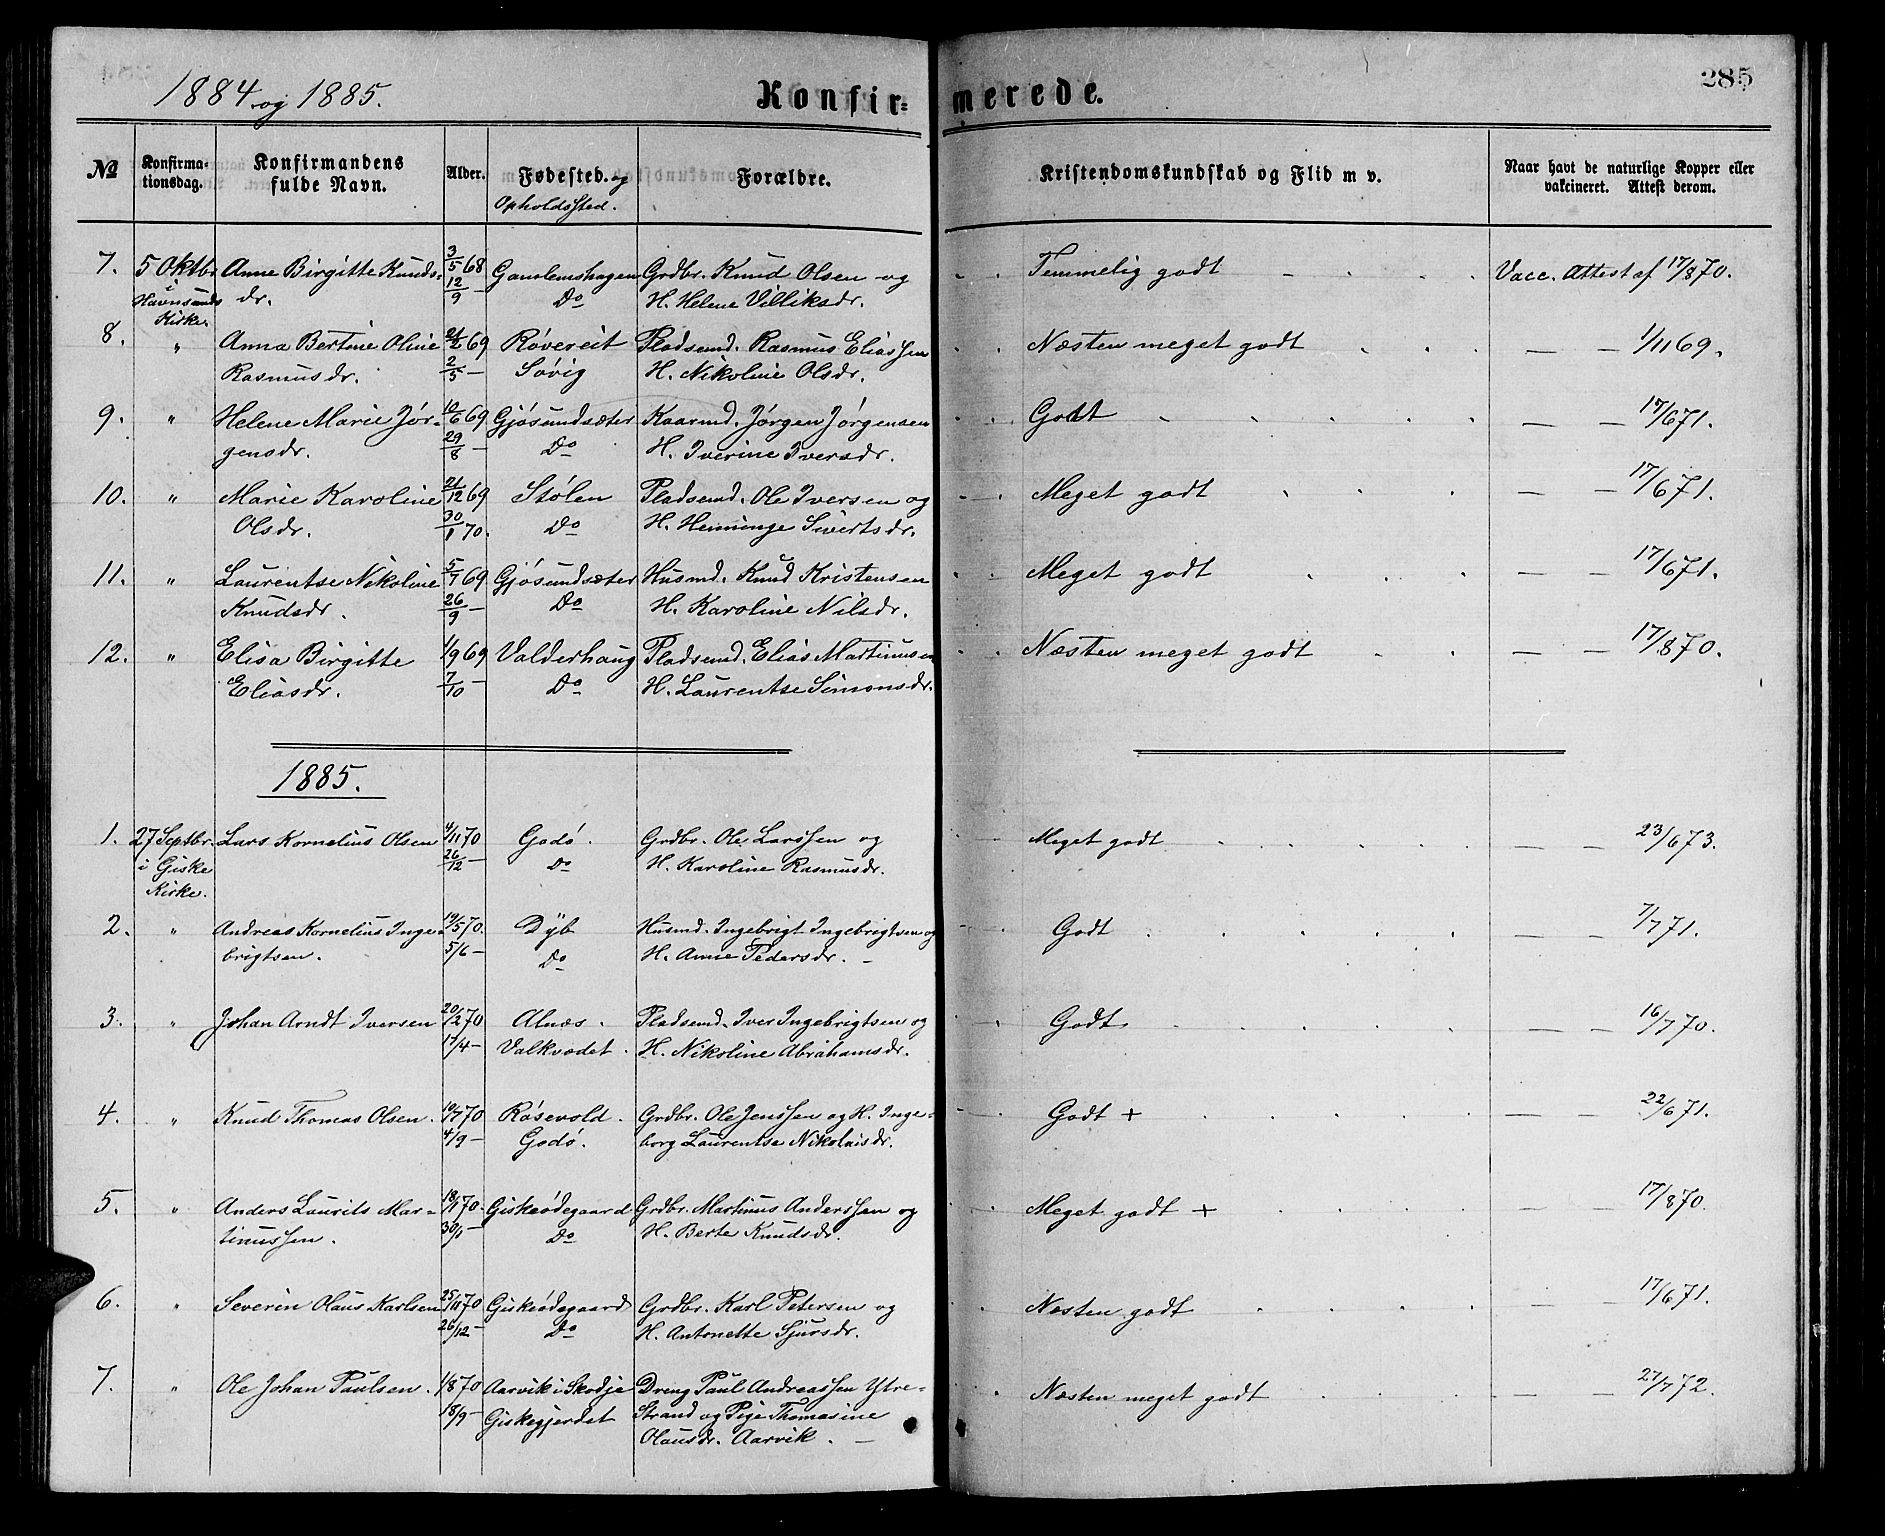 285
1884 og 1885. Konfirmerede.
No Konfirmationsdag. Konfirmandens fulde Navn. Alder. Fødested. og Opholdssted. Forældre. Kristendomskundskab og Flid m v. Naar havt de naturlige Kopper eller vakcineret. Attest derom.
7. 5 Oktbr Anne Birgitte Knuds- 3/5 68 Gamlemshagen Grdbr. Knud Olsen og Temmelig godt Vacc. Attest af 17/8 70.
i Havnsunds Kirke. dr. 12/9 Do H. Helene Villiksdr.
8. " Anna Bertine Oline 21/2 69 Røvereit Pladsemd. Rasmus Eliassen Næsten meget godt — — 1/11 69.
Rasmusdr. 2/5 — Søvig H. Nikoline Olsdr.
9. " Helene Marie Jør- 10/6 69 Gjøsundsæter Kaarmd. Jørgen Jørgensen Godt — — 17/6 71.
gensdr. 29/8 — Do H. Iverine Iversdr.
10. " Marie Karoline 21/12 69 Stølen Pladsemd. Ole Iversen og Meget godt — — 17/6 71.
Olsdr. 30/1 70. Do H. Hemminge Sivertsdr.
11. " Laurentse Nikoline 5/7 69 Gjøsundsæter Husmd. Knud Kristensen Meget godt — — 17/6 71.
Knudsdr. 26/9 — Do H. Karoline Nilsdr.
12. " Elisa Birgitte 1/9 69 Valderhaug Pladsemd. Elias Martinusen Næsten meget godt — — 17/8 70.
Eliasdr. 7/10 — Do H. Laurentse Simonsdr.
1885.
1. 27 Septbr. Lars Kornelius Olsen 4/11 70 Godø. Grdbr. Ole Larssen og Meget godt — — 23/6 73.
i Giske 26/12 — Do H. Karoline Rasmusdr.
Kirke.
2. " Andreas Kornelius Inge- 19/5 70. Dyb Husmd. Ingebrigt Ingebrigtsen og Godt — — 7/7 71.
brigtsen. 5/6 — Do H. Anne Pedersdr. —
3. " Johan Arndt Iversen 20/2 70 Alnæs. Pladsemd. Iver Ingebrigtsen og Godt — — 16/7 70.
17/4 — Valkvædet. H. Nikoline Abrahamsdr.
4. " Knud Thomas Olsen. 19/7 70 Røsevold. Grdbr. Ole Jenssen og H. Inge- Godt + — — 22/6 71.
4/9 — Godø. borg Laurentse Nikolaisdr.
5. " Anders Laurits Mar- 18/1 70. Giskeødegaard Grdbr. Martinus Anderssen og Meget godt + — — 17/8 70.
tinussen. 30/1 Do H. Berte Knudsdr.
6. " Severin Olaus Karlsen 25/11 70 Giskeødegaard Grdbr. Karl Petersen og Næsten godt — — 17/6 71.
26/12 — Do H. Antonette Sjursdr.
7. " Ole Johan Paulsen. 1/8 70 Aarvik i Skodje Dreng Paul Andreassen Ytre- Næsten meget godt — — 27/7 72.
18/9 — Giskegjerdet Strand og Pige Thomasine
Olausdr. Aarvik. —